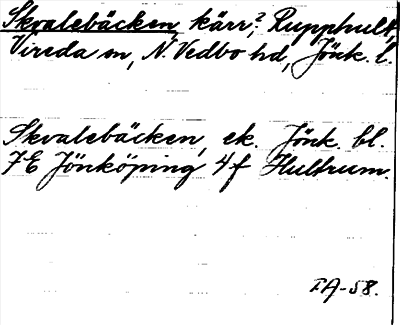 Skvalebäcken, kärr?, Rupphult,
Vireda sn, N. Vedbo hd, Jönk. l.
Skvalebäcken, ek. Jönk. bl.
7E Jönköping 4f Hultrum.
IA-58.